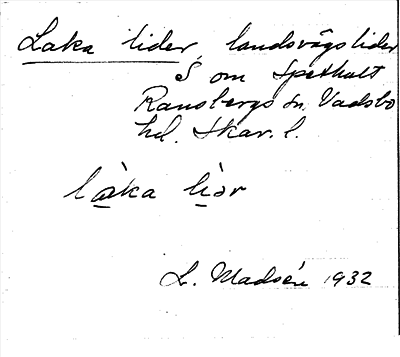 Laka lider, landsvägslider
S om Spethult
Ransbergs sn. Vadsbo
hd. Skar. l.
là̱ka li̱ər
L. Madsén 1932